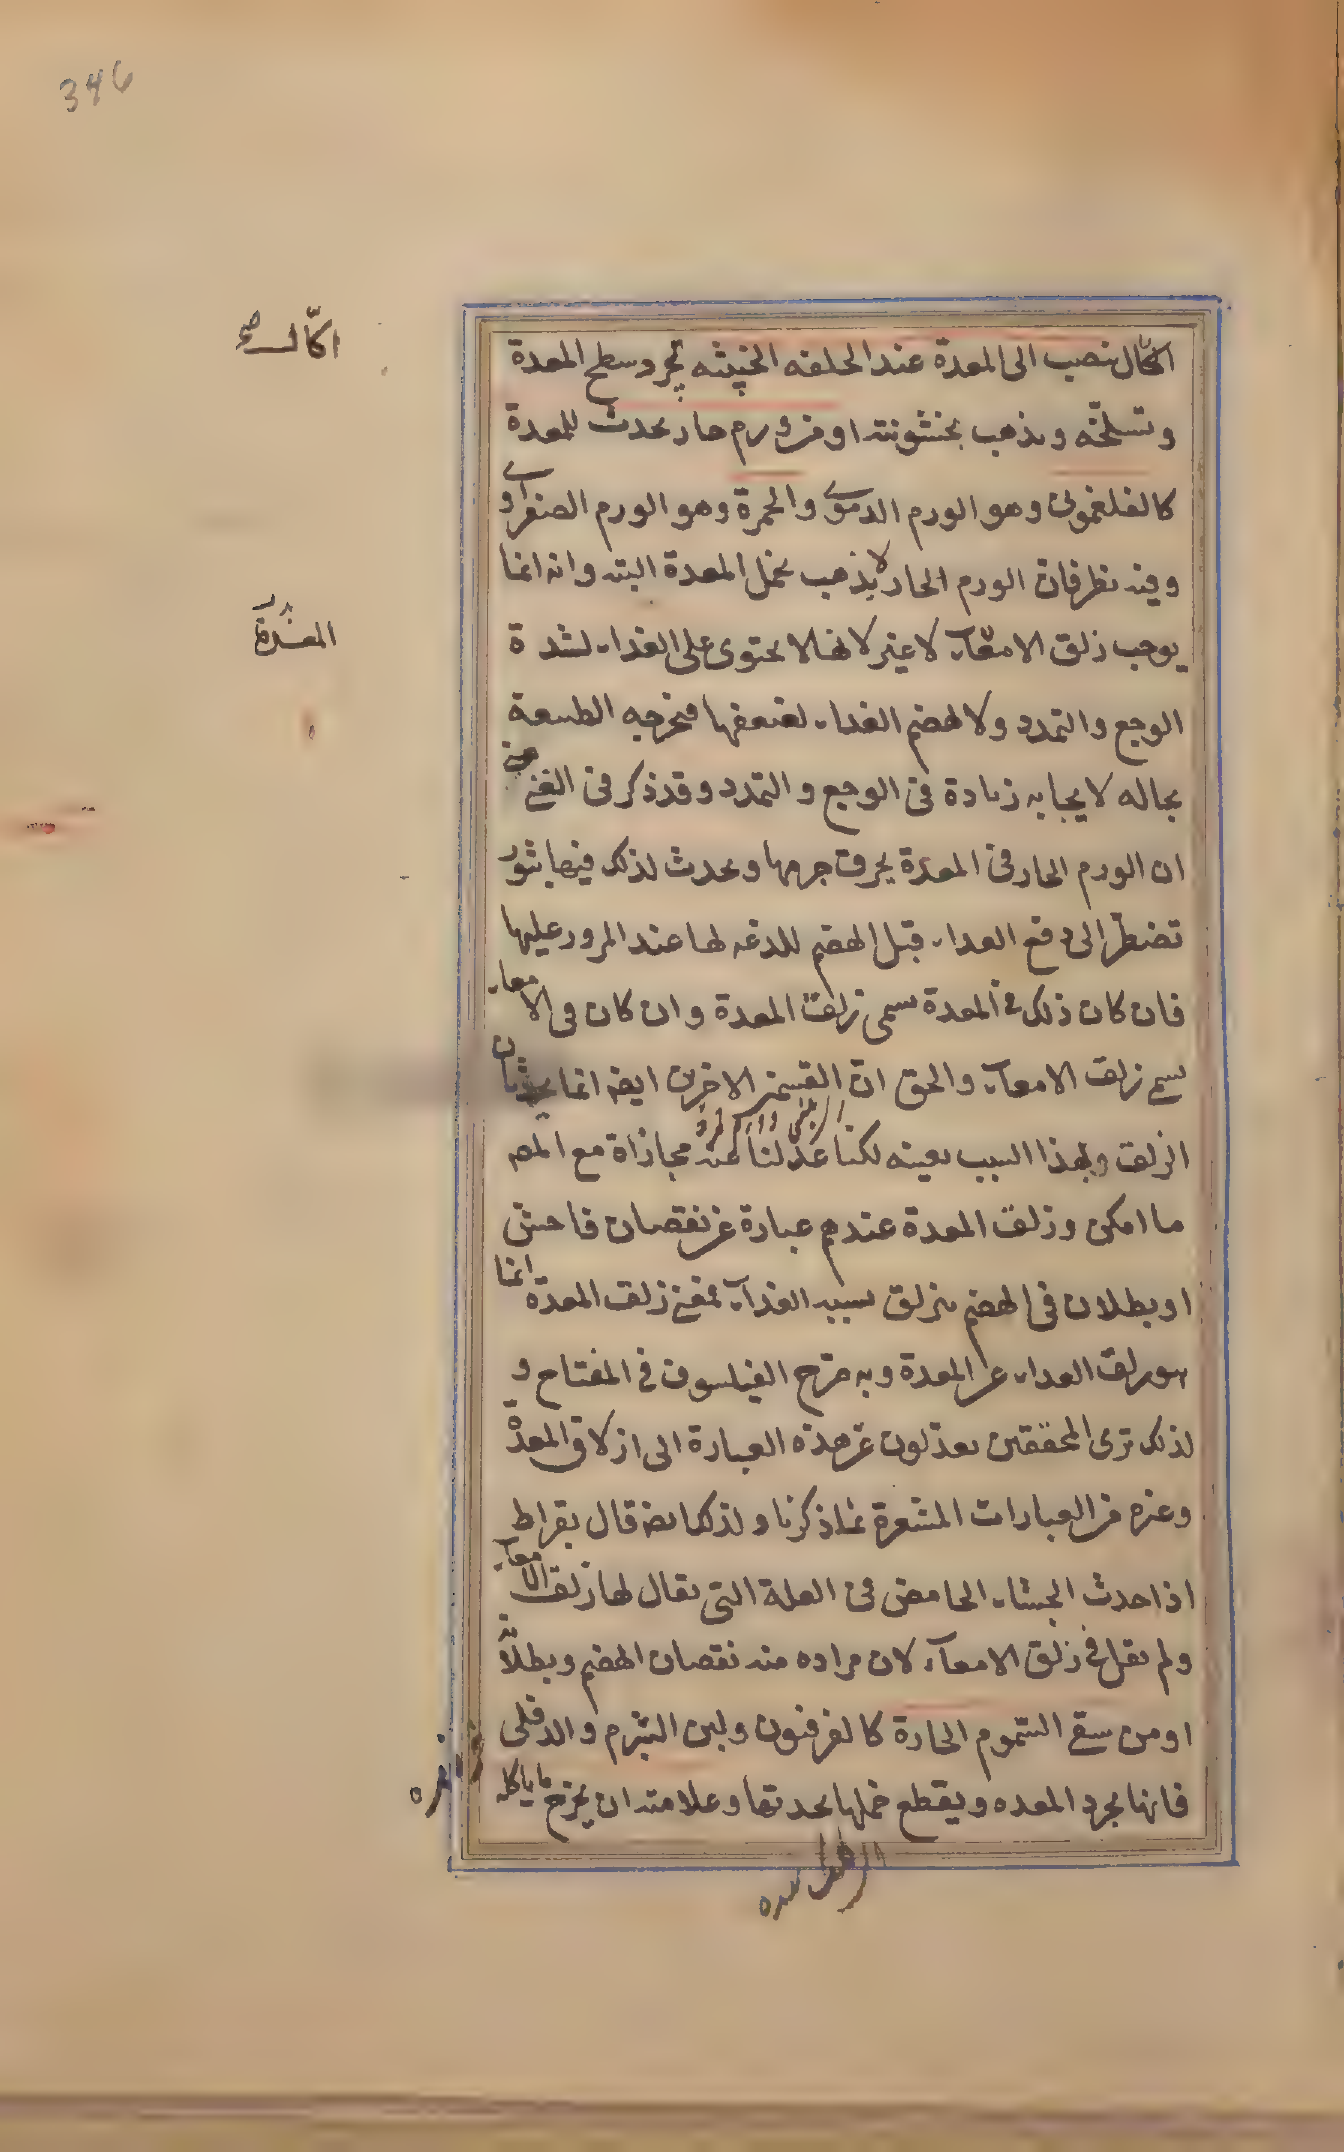 346
اكّال صح
المعدة
اكّال ينصب الى المعدة عند الخلفه الخبيثه يجرد سطح المعدة
وتسلخّه ويذهب بخشونته او من ورم حار يحدث للمعدة
كالفلغمونى وهو الورم الدموى والحمرة وهو الورم الصفراوى
وفيه نظر فان الورم الحار لا يذهب بخمل المعدة البته وانه انما
يوجب زلق الامعآء لا غير لانها لا يحتوى على الغذاء لشدة
الوجع والتمدد ولا لهضم الغداء لضعفها فيخرجه الطبيعة
بحاله لايجابه زيادة فى الوجع والتمدد وقد ذكر فى الغنى
ان الورم الحار فى المعدة يحرق جرمها ويحدث لذلك فيها بثور
تضطرّ الى دفع الغداء قبل الهضم للدغه لها عند المرور عليها
فان كان ذلك فى المعدة سمى زلق المعدة وان كان فى الامعاء
سمى زلق الامعآء والحق انّ القسمين الاخرين ايضا انما يحدثان
الزلق وبهذا السبب بعينه لكنا عدلنا عنه مجازاة مع المصـ
ما امكن وزلق المعدة عندهم عبارة عن نقصان فاحش
او بطلان فى الهضم ينزلق بسببه الغذآء فمعنى زلق المعدة انما
هو زلق الغداء عن المعدة وبه صرّح الفيلسوف فى المفتاح و
لذلك ترى المحققين يعدلون عن هذه العبارة الى ازلاق المعدة
وغيره من العبارات المشعرة بما ذكرنا ولذلك ايضا قال بقراط
اذا حدث الجشاء الحامض فى العلة التى يقال لها زلق الامعآء
ولم يقل فى زلق الامعآء لان مراده منه نقصان الهضم وبطلانه
او من سقى السّموم الحادة كالفرفيون ولبن الشبرم والدفلى
فانها يجرد المعده ويقطع خملها بحدتها وعلامته ان يخرج ما ياكله